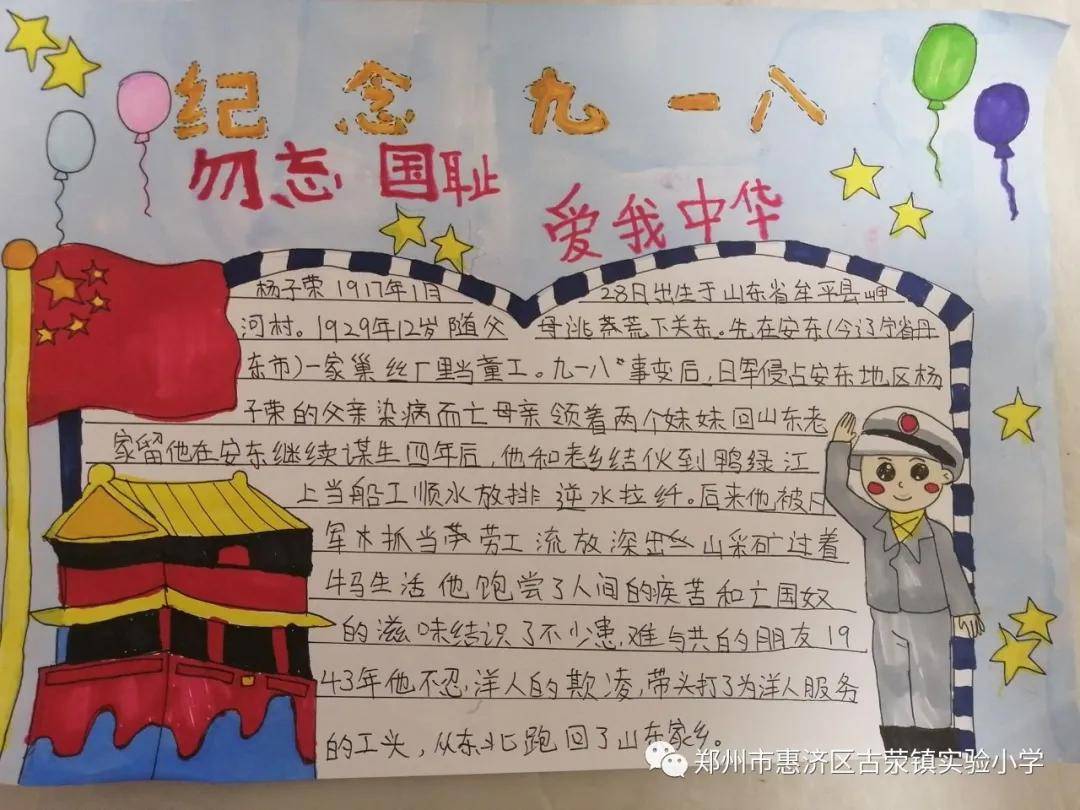 纪念九一八
勿忘国耻
爱我中华
杨子荣1917年1月28日出生于山东省牟平县嵎
河村。1929年12岁随父母逃荒下关东。先在安东(今辽宁省丹
东市)一家巢丝厂里当童工。九一八"事变后,日军侵占安东地区杨
子荣的父亲染病而亡母亲领着两个妹妹回山东老
家留他在安东继续谋生四年后,他和老乡结伙到鸭绿江
上当船工顺水放排逆水拉纤。后来他被日
军抓当劳工流放深山采矿过着
牛马生活他饱尝了人间的疾苦和亡国奴
的滋味结识了不少患,难与共的朋友19
43年他不忍洋人的欺凌,带头打了为洋人服务
的工头,从东北跑回了山东家乡。
郑州市惠济区古荥镇实验小学